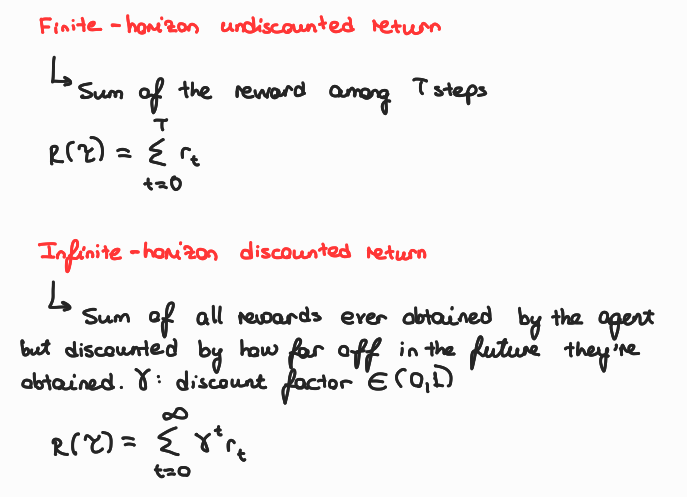 Finite-horizon undiscounted return
↳ Sum of the reward among T steps
R(τ) = ∑_{t=0}^{T} r_t
Infinite-horizon discounted return
↳ Sum of all rewards ever obtained by the agent
but discounted by how far off in the future they're
obtained. γ: discount factor ∈ (0,1)
R(τ) = ∑_{t=0}^{∞} γ^t r_t